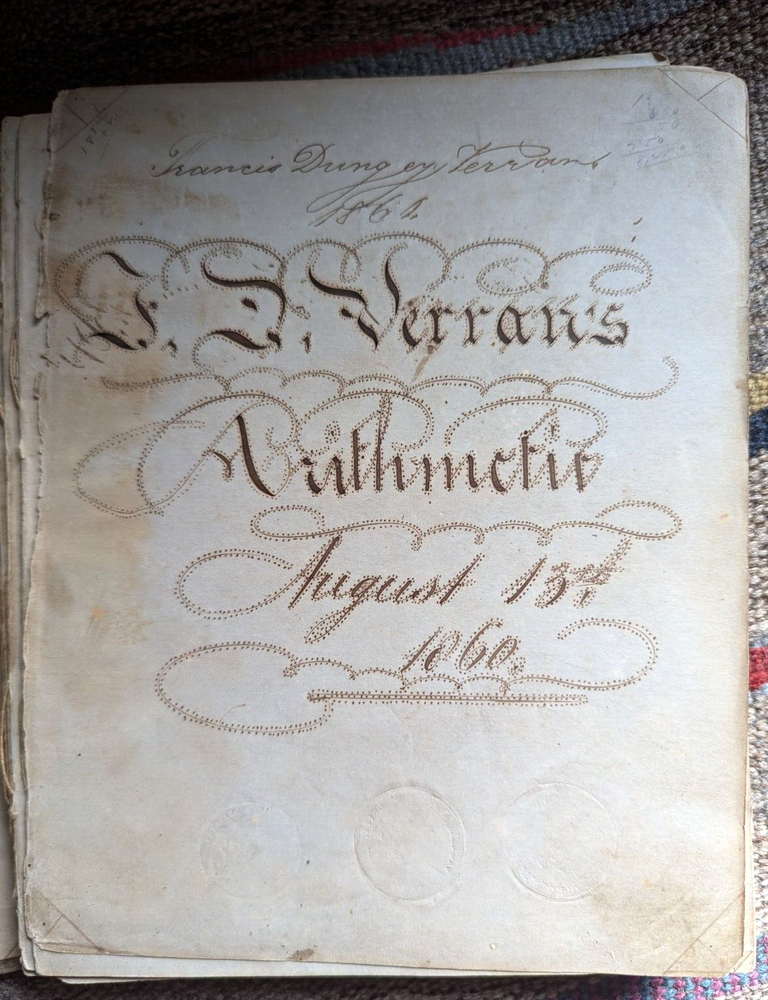 Francis Dungey Verran's
1861
F. D. Verran's
Arithmetic
August 13rd
1860.